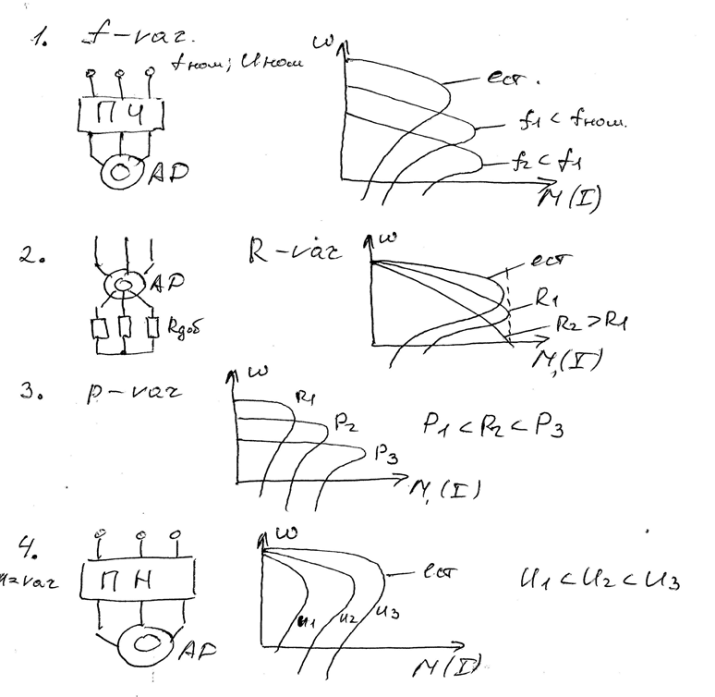 1. f-var.
fном; Uном
ПЧ
АД
ω
ест.
f1 < fном.
f2 < f1
M(I)
2.
АД
Rдоб
R-var
ω
ест
R1
R2 > R1
M,(I)
3. p-var
ω
P1
P2
P3
P1 < P2 < P3
M,(I)
4.
u=var
ПН
АД
ω
ест
u1 u2 u3
U1 < U2 < U3
M(I)